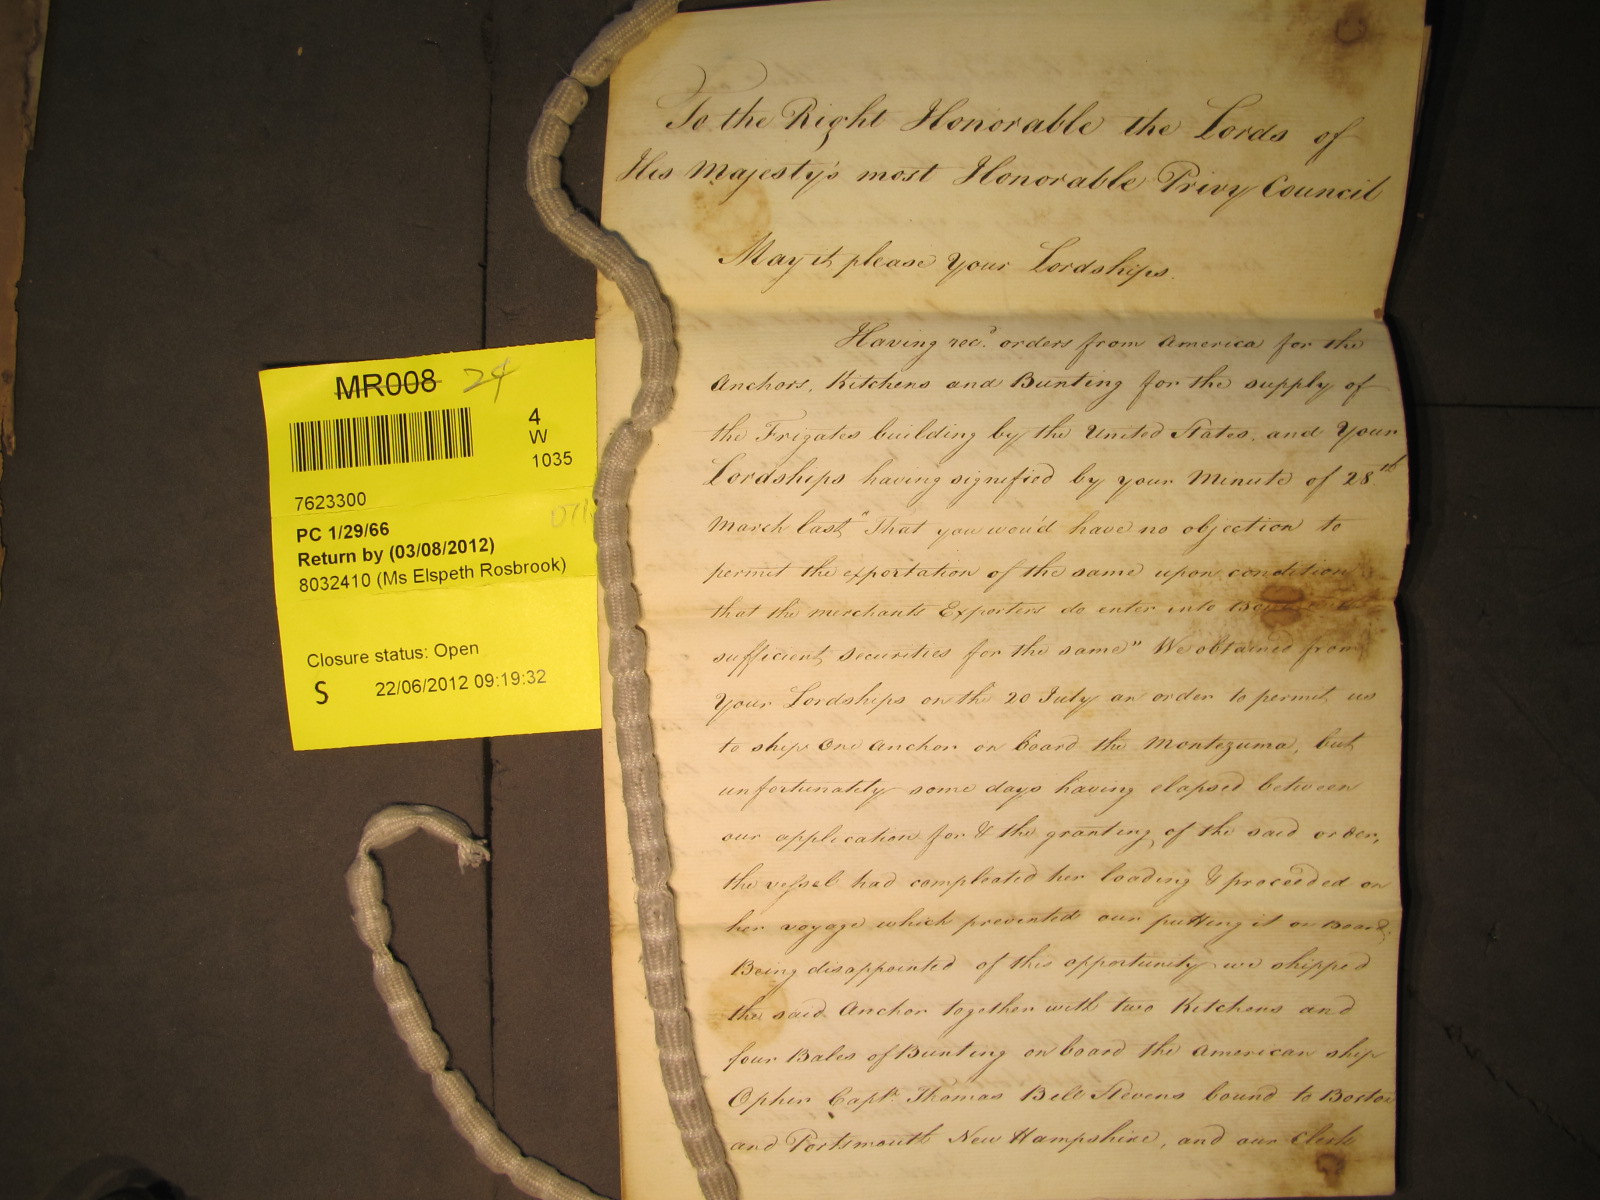 MR008 24
4
W
1035
7623300
PC 1/29/66
Return by (03/08/2012)
8032410 (Ms Elspeth Rosbrook)
Closure status: Open
S 22/06/2012 09:19:32
To the Right Honorable the Lords of
His Majesty's most Honorable Privy Council
May it please Your Lordships.
Having recd. orders from America for the
Anchors, Kitchens and Bunting for the supply of
the Frigates building by the United States, and Your
Lordships having signified by your Minute of 28th
March last "That you wou'd have no objection to
permit the exportation of the same upon condition
that the merchants Exporters do enter into
sufficient securities for the same" We obtained from
Your Lordships on the 20 July an order to permit us
to ship One Anchor on board the Montezuma, but
unfortunately some days having elapsed between
our application for & the granting of the said order,
the vessel had compleated her loading & proceeded on
her voyage which prevented our putting it on Board.
Being disappointed of this opportunity we shipped
the said Anchor together with two Kitchens and
four Bales of Bunting on board the American ship
Ophir Capt. Thomas Bell Stevens bound to Boston
and Portsmouth New Hampshire, and our Clerk